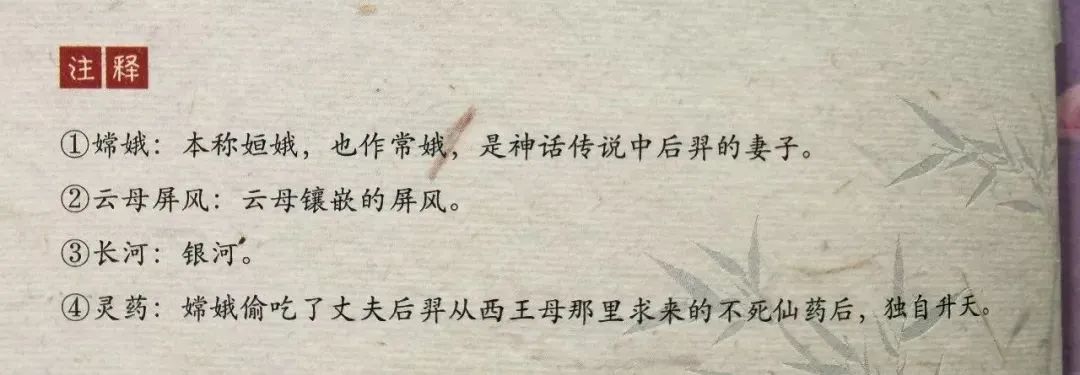 注释
①嫦娥：本称姮娥，也作常娥，是神话传说中后羿的妻子。
②云母屏风：云母镶嵌的屏风。
③长河：银河。
④灵药：嫦娥偷吃了丈夫后羿从西王母那里求来的不死仙药后，独自升天。